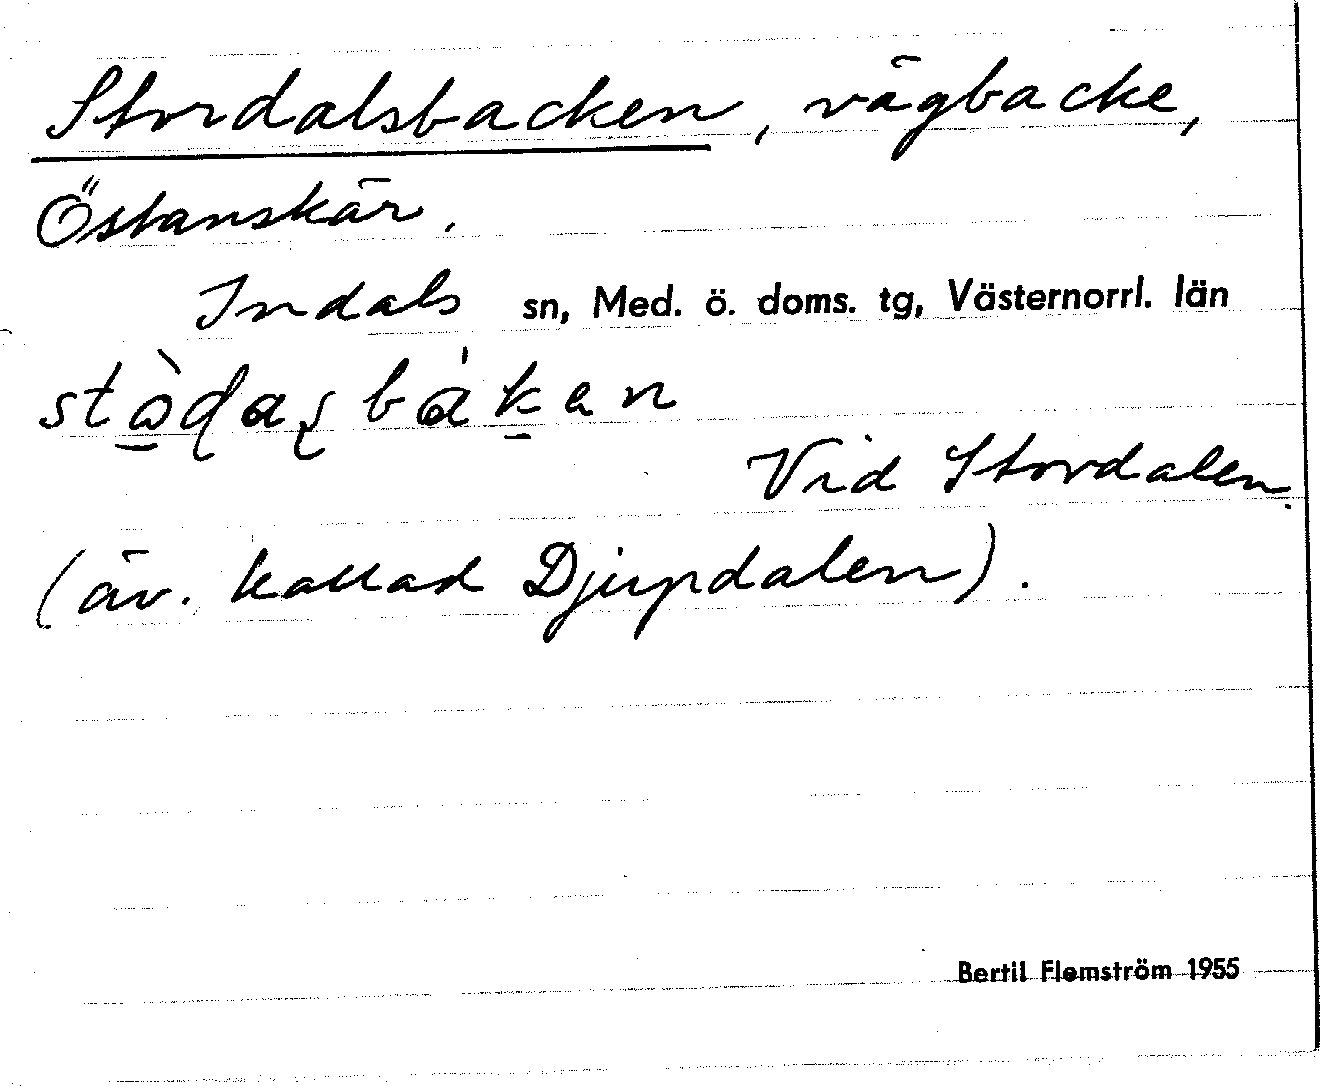 Stordalsbacken, vägbacke,
Östanskär.
Indals sn, Med. ö. doms. tg, Västernorrl. län
Vid Stordalen.
(äv. kallad Djupdalen).
Bertil Flemström 1955